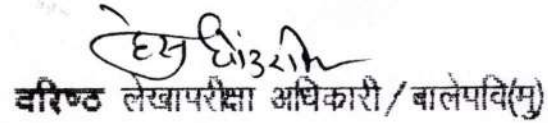 वरिष्ठ लेखापरीक्षा अधिकारी / बालेपवि(मु)